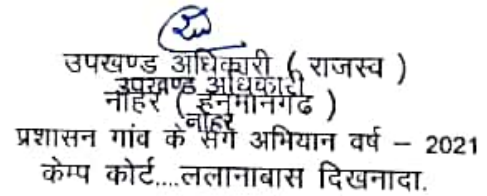 उपखण्ड अधिकारी ( राजस्व )
उपखण्ड अधिकारी
नोहर ( हनुमानगढ )
नोहर
प्रशासन गांव के संग अभियान वर्ष – 2021
केम्प कोर्ट....ललानाबास दिखनादा.